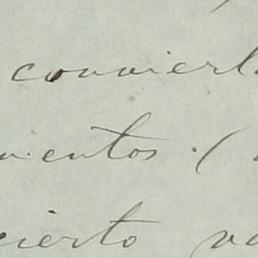 conviert
mentos. (
cierto va